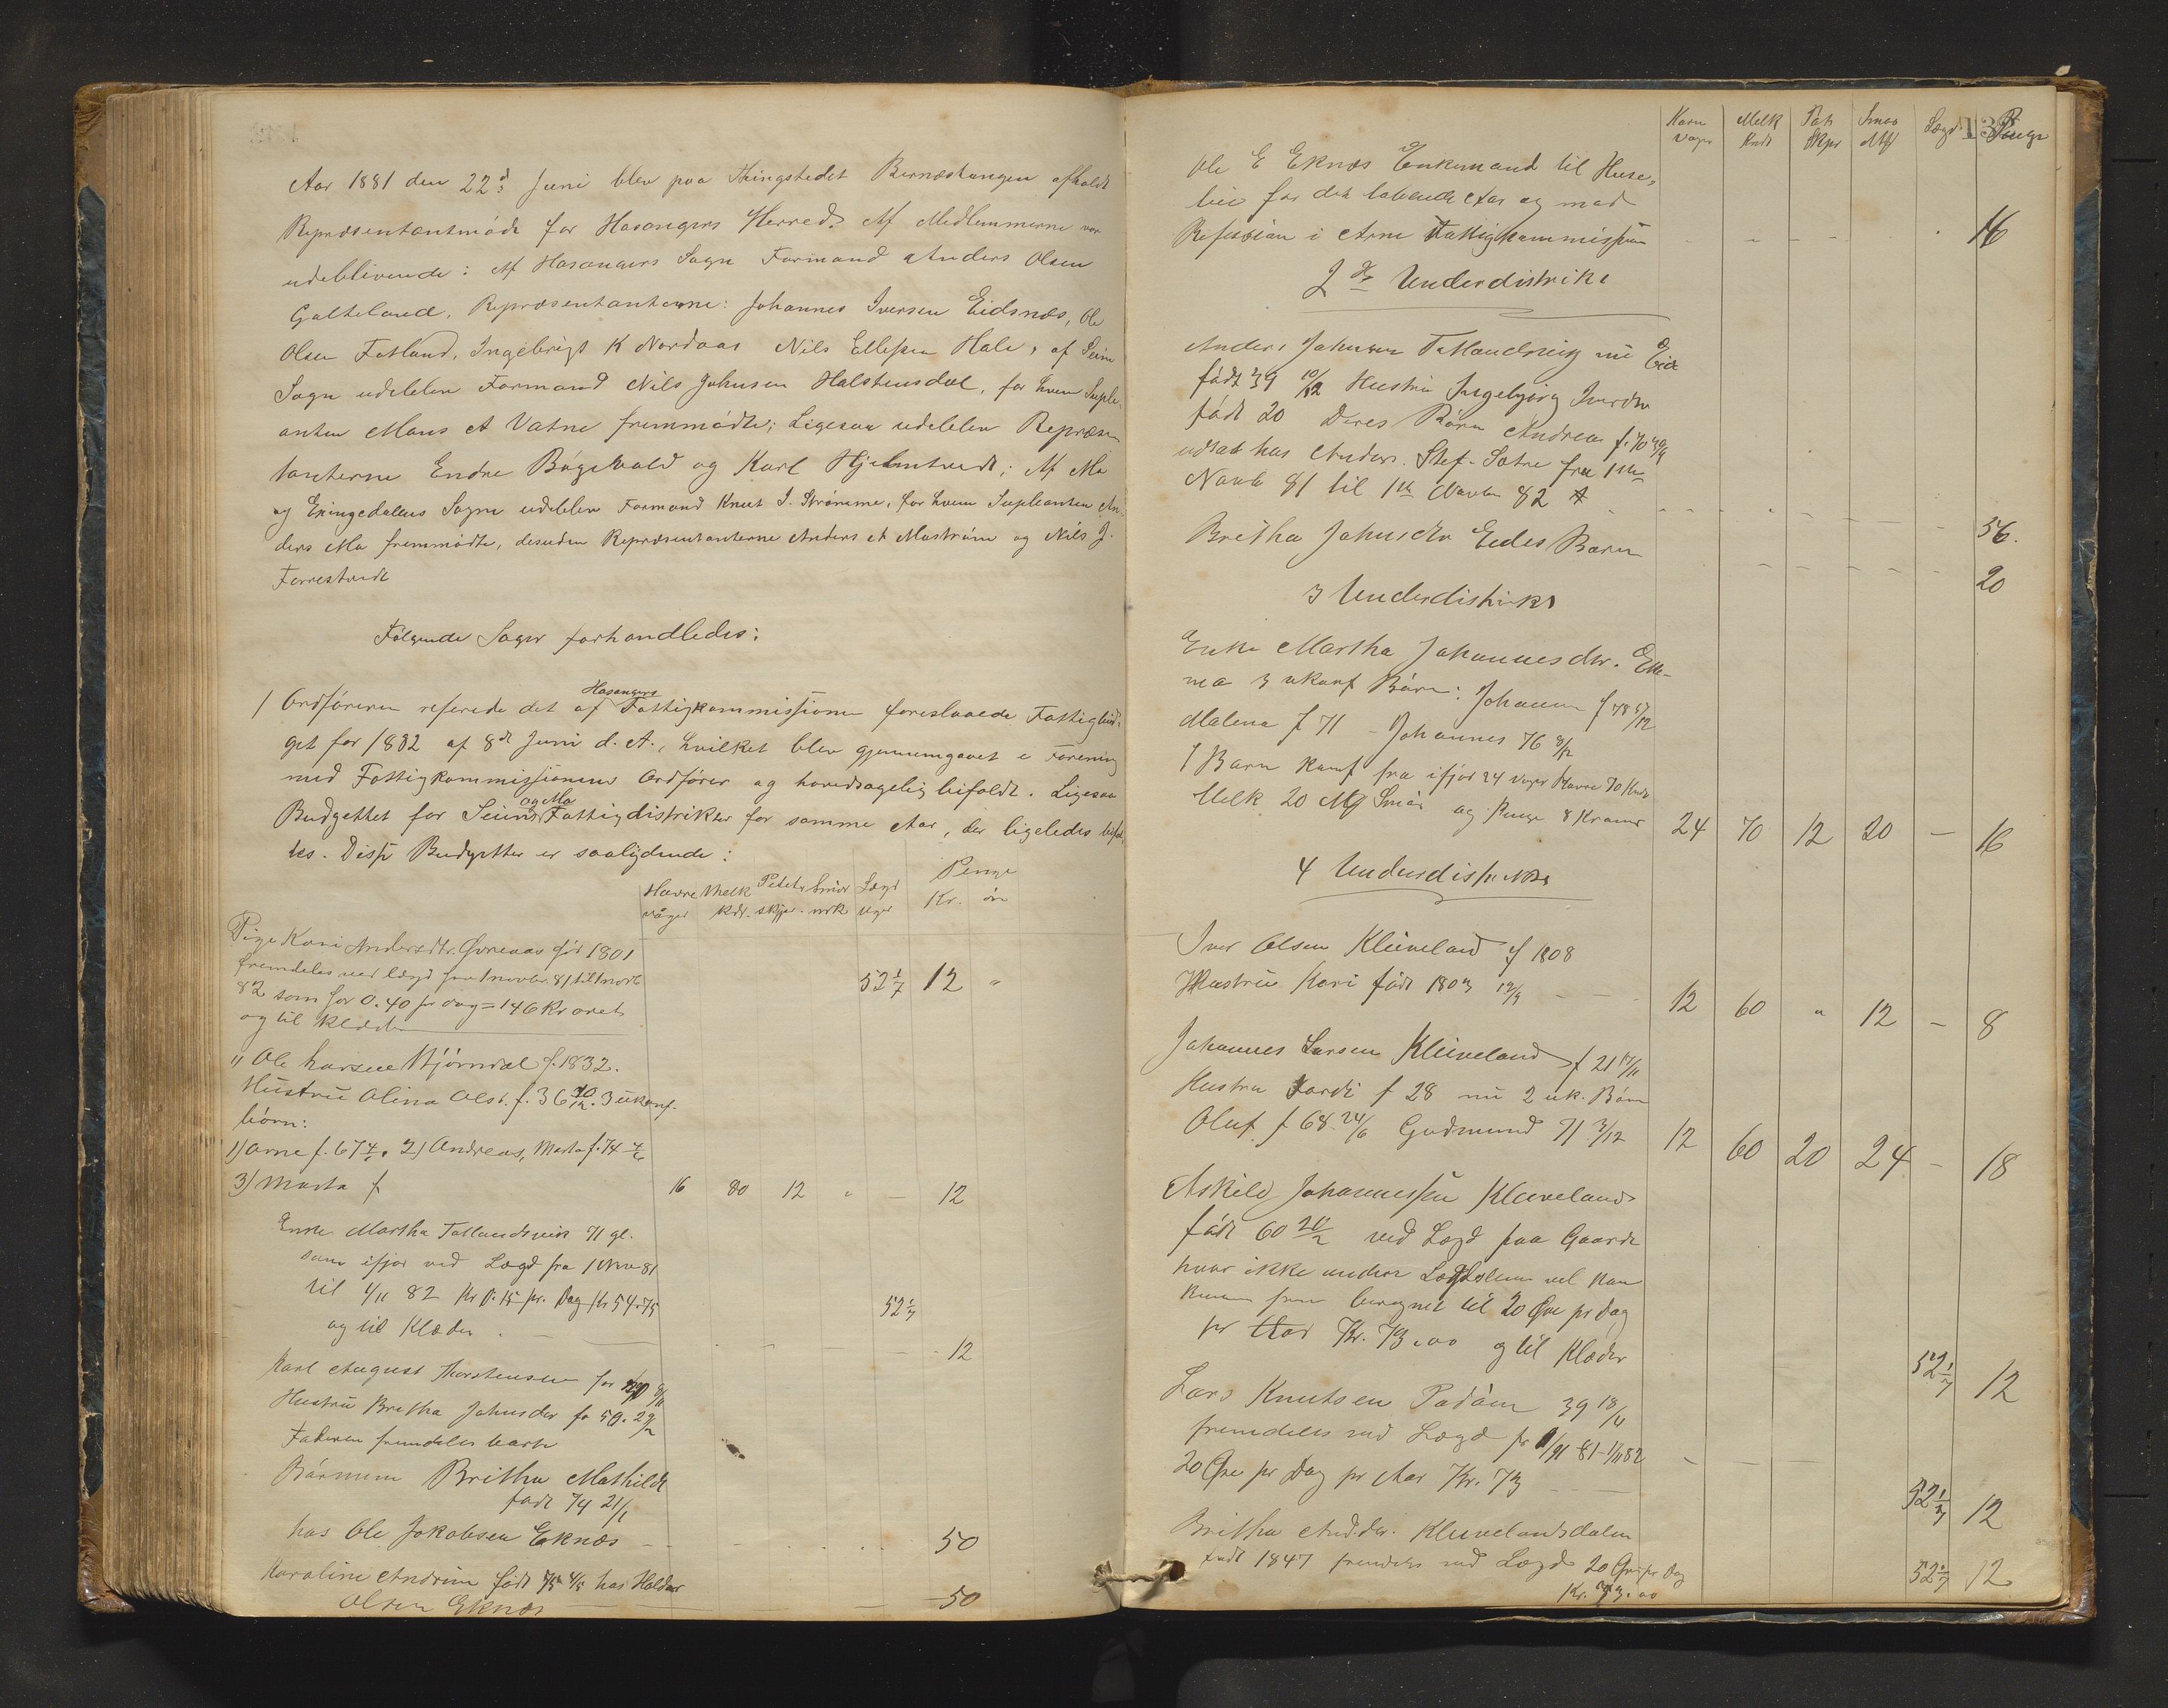 Aar 1881 den 22d Juni blev paa Thingstedet Bernæstangen afholdt
Repræsentantmöde for Hosangers Herred. Af Medlemmerne var
udeblivende: Af Hosangers Sogn Formand Anders Olsen
Galteland, Repræsentanterne: Johannes Iversen Eidsnæs, Ole
Olsen Fatland, Ingebrigt K Nordaas Nils Ellefsen Hole, af Seim
Sogn udeblev Formand Nils Johnsen Halstensdal, for hvem Suple
anten Mons A Vatne fremmödte; Ligesaa udeblev Repræsen
tanterne Endre Bögevald og Karl Hjelmtvedt; Af Mo
og Exingedalens Sogn udeblev Formand Knut I. Strömme, for hvem Supleanten An
ders Mo fremmödte, desuden Repræsentanterne Anders A Mostrøm og Nils J.
Forrestvedt
Følgende Sager forhandledes:
1 Ordföreren referede det af Hosangers Fattigkommissionen foreslaaede Fattigbud
get for 1882 af 8de Juni d. A., hvilket blev gjennemgaaet i Forening
med Fattigkommissionens Ordförer og hovedsagelig bifaldt. Ligesaa
Budgettet for Seims og Mo Fattigdistrikter for samme Aar, der ligeledes bifald
tes. Disse Budgetter er saalydende:
Havre Melk Potet Smör Lægd Penge
våger Kdr. skjper mrk uger Kr. öre
Pige Kari Andersdtr. født 1801
fremdeles ved lægd fra 1 novbr 81 til 1 novb
82 som før 0.40 pr dag = 146 Kr året
og til klæder 52 1/7 12 "
" Ole Larsen Hjørndal f. 1832.
Hustru Olina Olsd. f. 36 3 ukonf.
börn:
1) Arne f. 67 2) Andreas, f. 74
3) Marta f 16 80 12 " — 12
Enke Martha Tollandsvik 71 gl.
som ifjor ved Lægd fra 1 Nov 81
til 1/11 82 Kr 0.15 pr. Dag Kr 54.75 52 1/7
og til Klæder 12
Karl August Thorstensen
Hustru Britha Johnsdtr f. 50.
Faderen fremdeles borte
Börnene Britha Mathilde
født 74 21/1
hos Ole Jokobsen Eknæs 50
Karoline Andrine født 75 4/5 hos Haldor
Olsen Eknæs 50
Korn Melk Pot Smør Lægd Penge
Vaager Knd Skjper Mk
Ole E Eknæs Enkemand til Huse,
leie for det løbende Aar og mod
Refusion i Arne Fattigkommission 16
2det Underdistrikt
Anders Johnsen Tollandsvig nu Eide
født 39 10/12 Hustru Ingebjørg Iversdtr
født 20 Deres Barn Andreas f. 70
udsat hos Anders. Stef. Sætre fra 1ste
Novb 81 til 1ste Novbr 82 56.
Britha Johnsdtr Eides Barn 20
3 Underdistrikt
Enke Martha Johannesdtr. Eke-
nea 3 ukonf Børn: Johanna f 78
Malena f 71 Johannes 76 8/12
1 Barn konf fra ifjor 24 Vaager Havre 70 Knd
Melk 20 Mk Smör og Penge 8 Kroner 24 70 12 20 — 16
4 Underdistrikt
Iver Olsen Kleiveland f 1808
Hustru Kari født 1803 19/9 12 60 " 12 — 8
Johannes Larsen Kleiveland f 21 17/11
Hustru f 28 nu 2 uk. Börn
Oluf f 68. 24/6 Gudmund 71 3/12 12 60 20 24 — 18
Askild Johannessen Kleiveland
født 60 ved Lægd paa Gaarde
hvor ikke anden vel kan
beregnet til 20 Øre pr Dag
pr Aar Kr. 73.00 og til Klæder 52 1/7 12
Lars Knutsen Padøen 39 18/11
fremdeles ved Lægd fra 1/11 81 - 1/11 82
20 Øre pr Dag pr Aar Kr. 73 52 1/7 12
Britha And.dtr. Kleivelandsdalen
født 1847 fremdeles ved Lægd 20 Øre pr Dag
Kr. 73.00 52 1/7 12